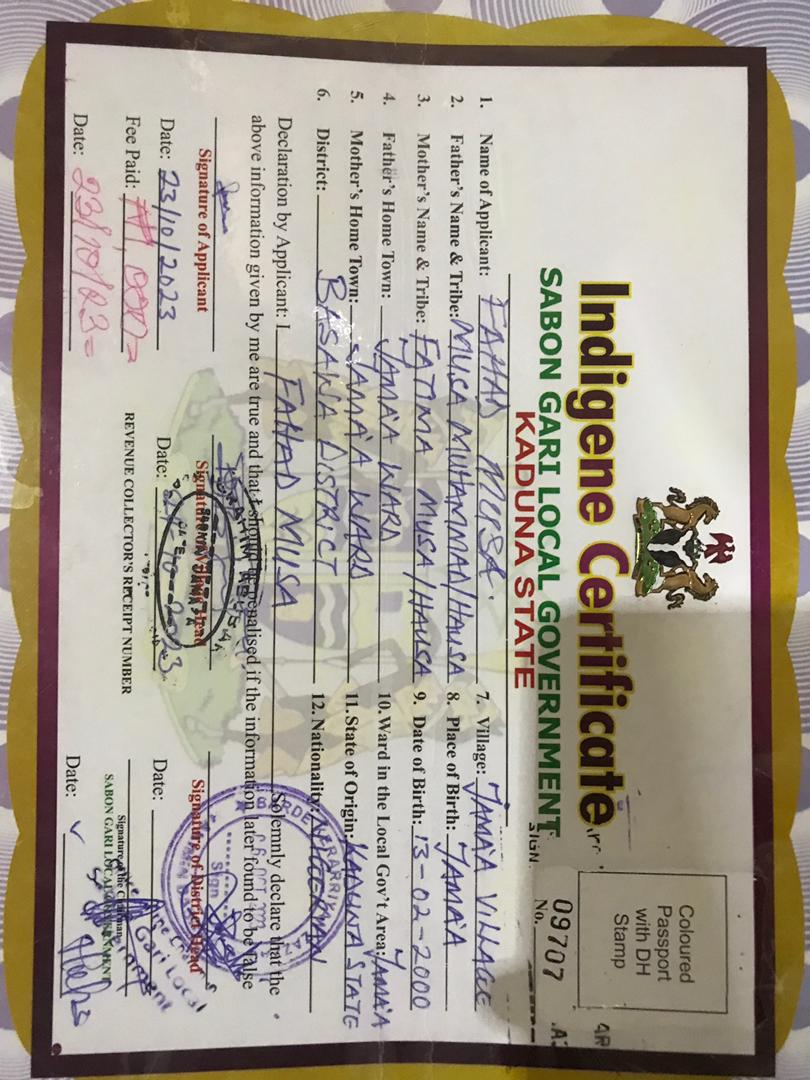 Indigene Certificate
SABON GARI LOCAL GOVERNMENT
KADUNA STATE
Coloured
Passport
with DH
Stamp
09707
No.
SIGN.
1. Name of Applicant: FAHAD MUSA.
2. Father's Name & Tribe: MUSA MUHAMMAD/HAUSA
3. Mother's Name & Tribe: FATIMA MUSA/HAUSA
4. Father's Home Town: JAMA'A WARD
5. Mother's Home Town: JAMA'A WARD
6. District: BASAWA DISTRICT
7. Village: JAMA'A VILLAGE
8. Place of Birth: JAMA'A
9. Date of Birth: 13-02-2000
10. Ward in the Local Gov't Area: JAMA'A
11. State of Origin: KADUNA STATE
12. Nationality: NIGERIAN
Declaration by Applicant: I FAHAD MUSA Solemnly declare that the
above information given by me are true and that I should be penalised if the information later found to be false
Signature of Applicant
Date: 23/10/2023
Signature of Head
Date:
Signature of District Head
Date:
Fee Paid:
Date: 23/10/23
REVENUE COLLECTOR'S RECEIPT NUMBER
Signature of the Chairman
SABON GARI LOCAL GOVERNMENT
Date: